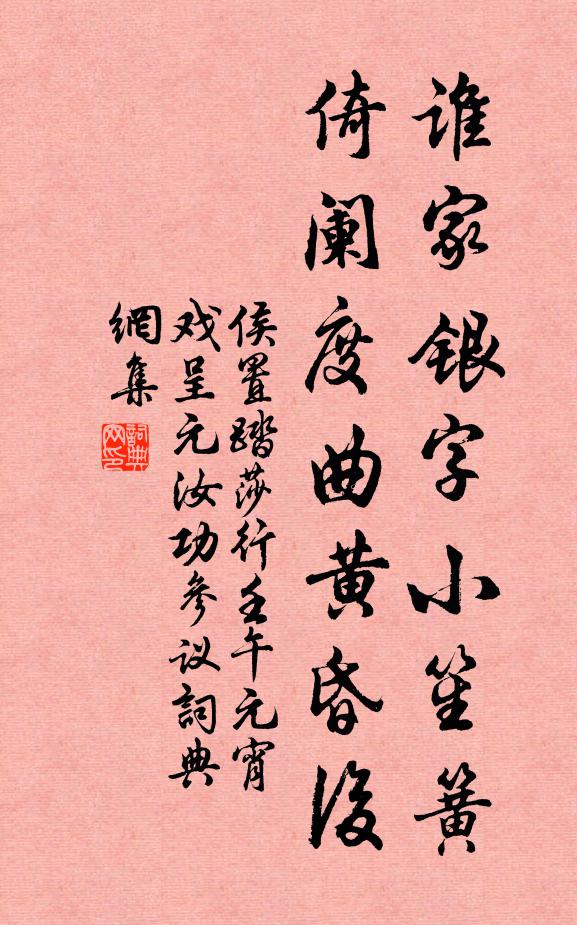 谁家银字小笙簧
倚阑度曲黄昏后
侯置踏莎行壬午元宵
戏呈元汝功参议詞典
網集
詞典网印